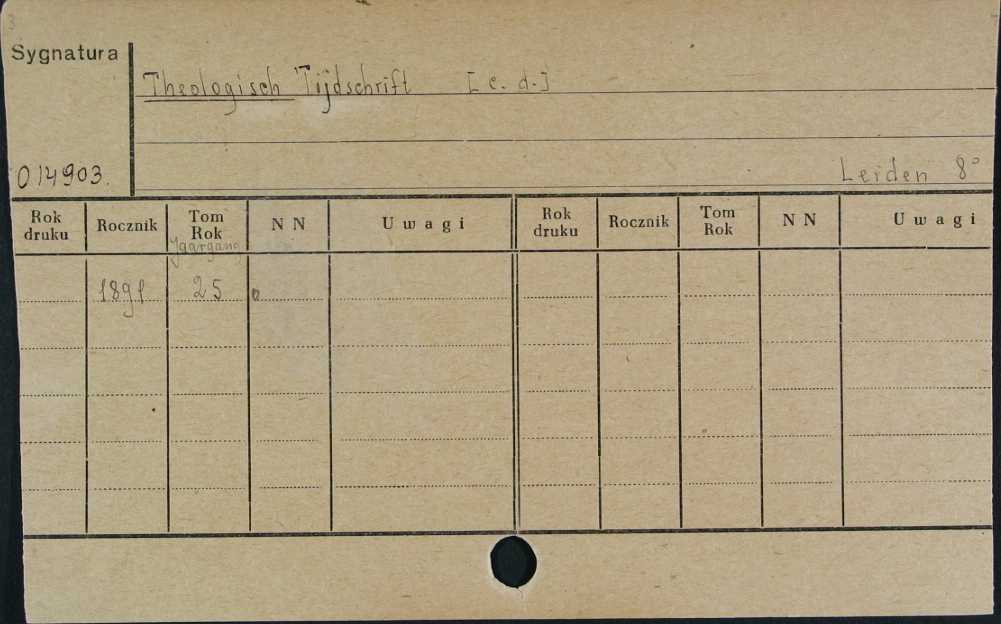 Sygnatura
Theologisch Tijdschrift [c. d.]
014903.
Leiden 8°
Rok druku Rocznik Tom Rok Jaargang N N Uwagi Rok druku Rocznik Tom Rok N N Uwagi
1891 25